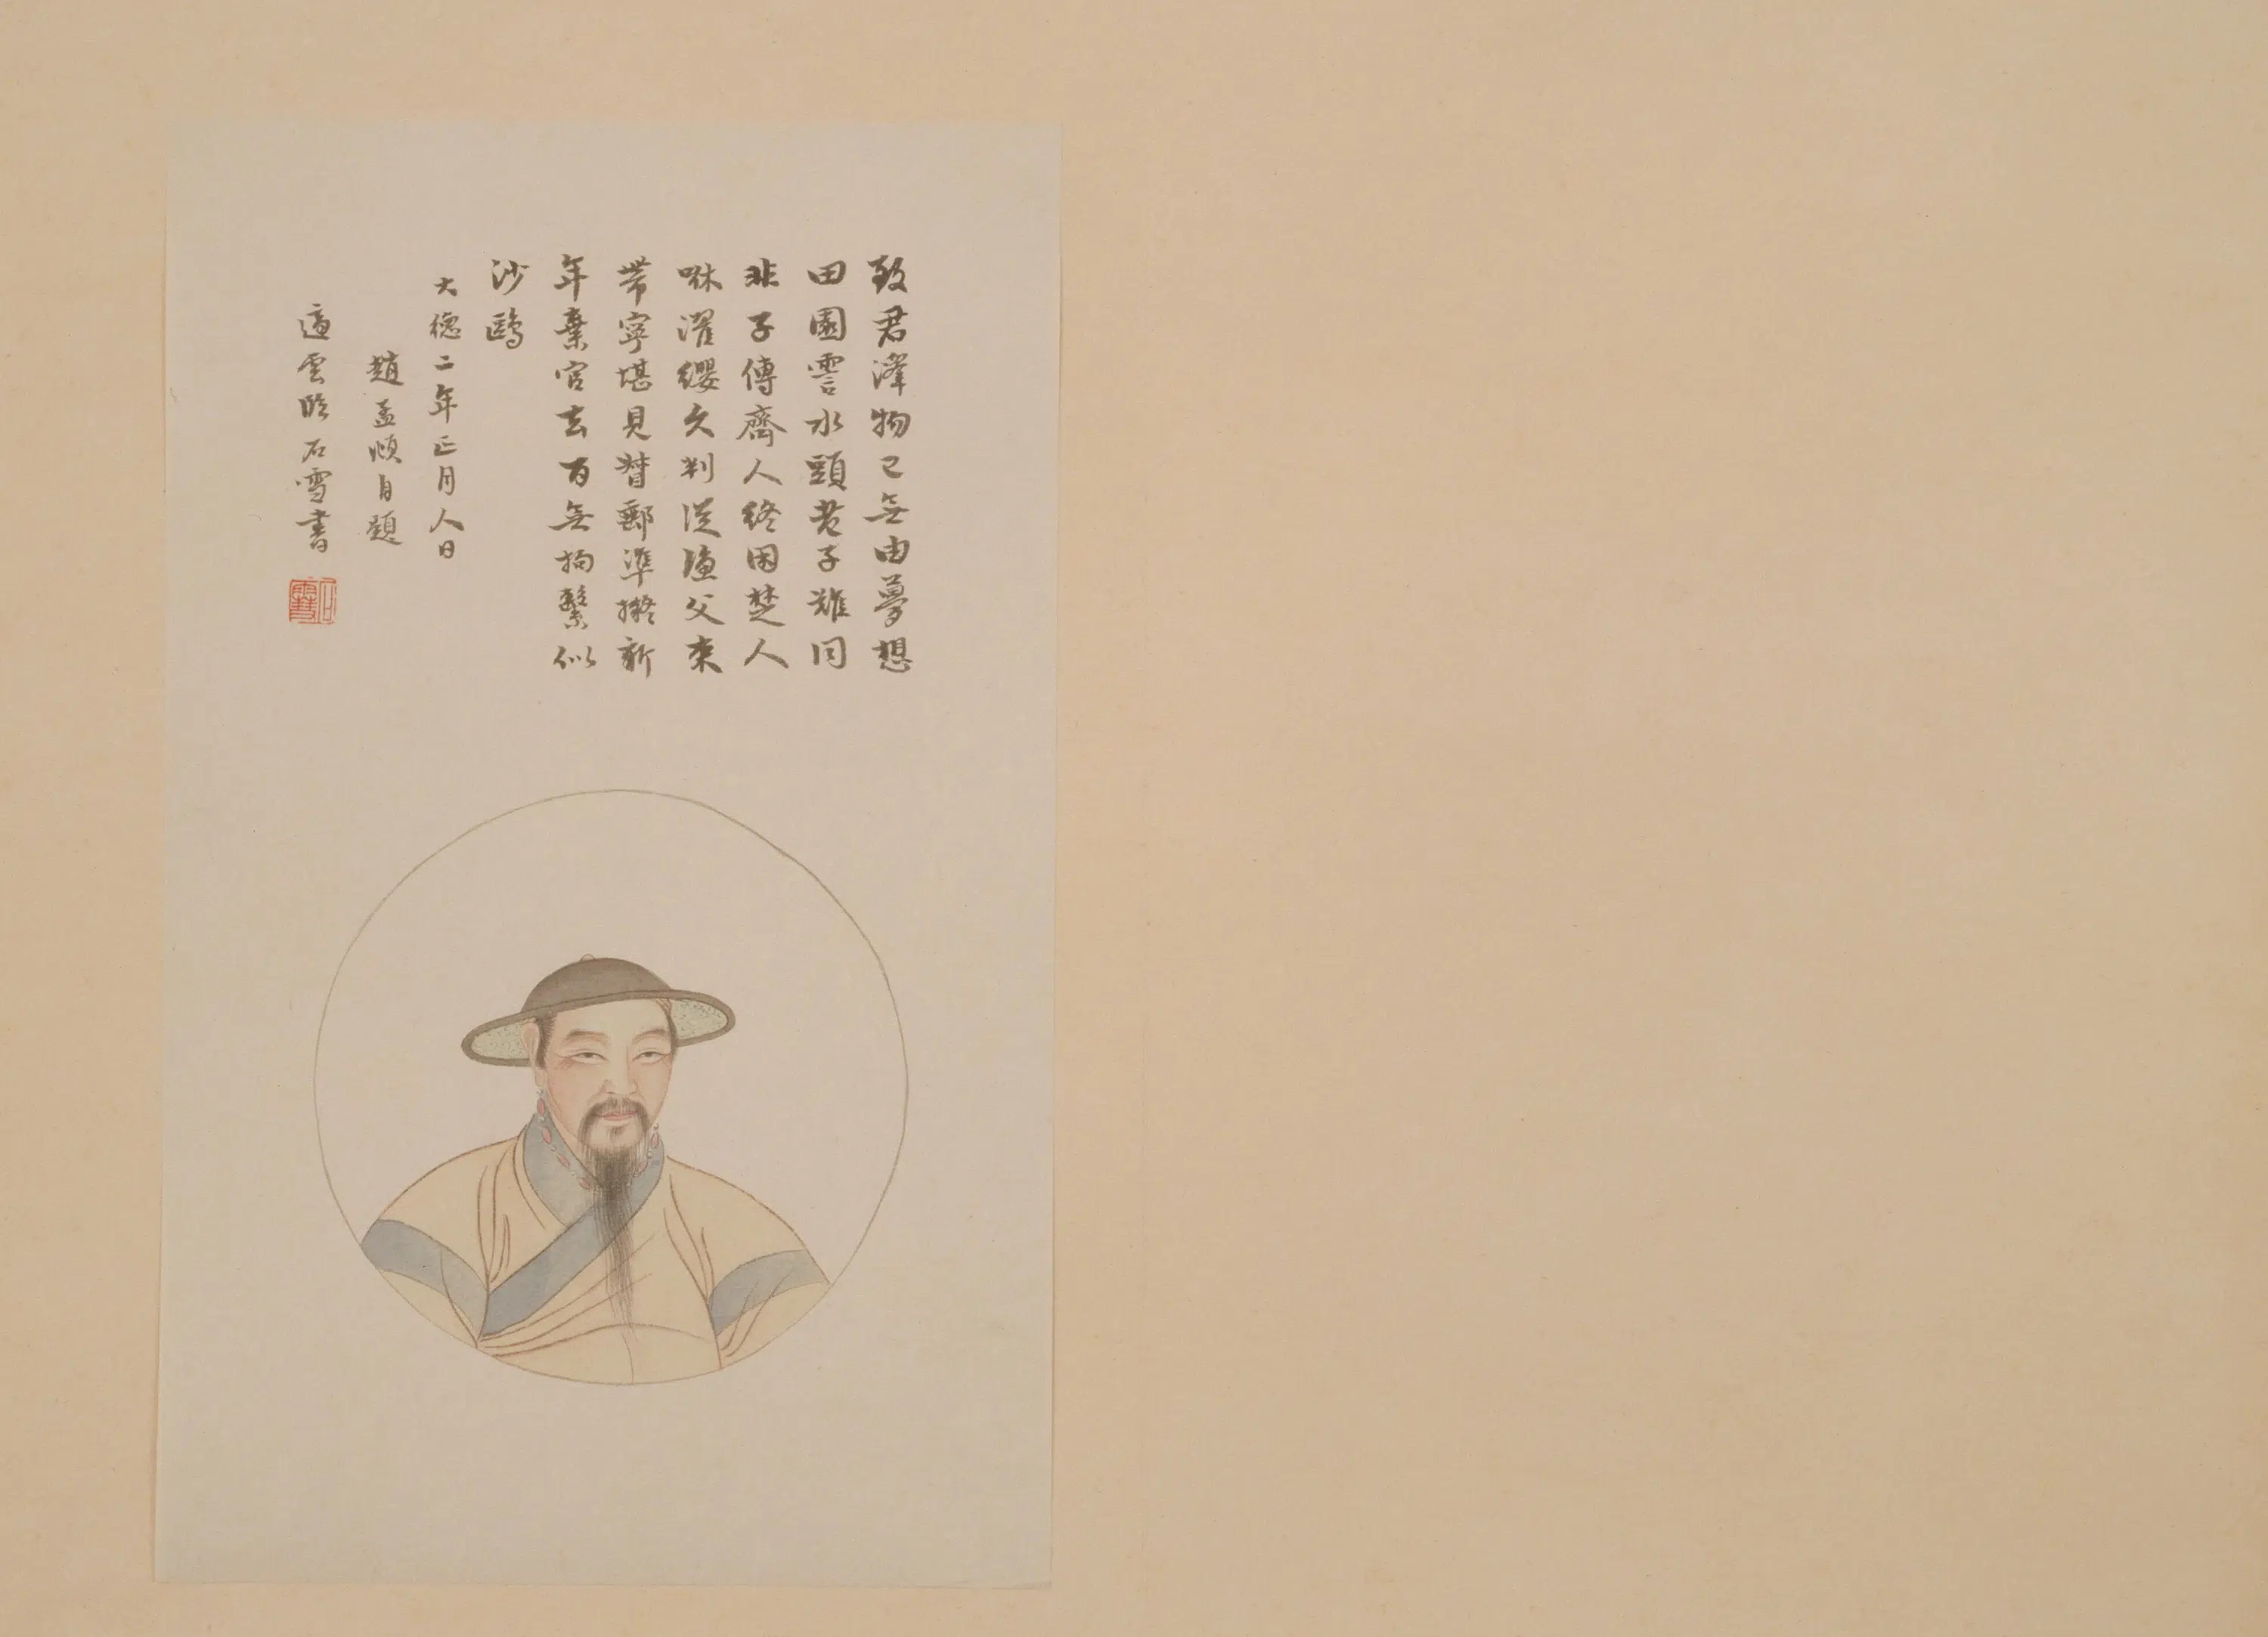 致君澤物已無由夢想
田園霅水頭老子難同
非子傳齊人終困楚人
咻濯纓久判從漁父束
帶寧堪見督郵準擬新
年棄官去百無拘繫似
沙鷗
大德二年正月人日
趙孟頫自題
適雲臨石雪書
石雪